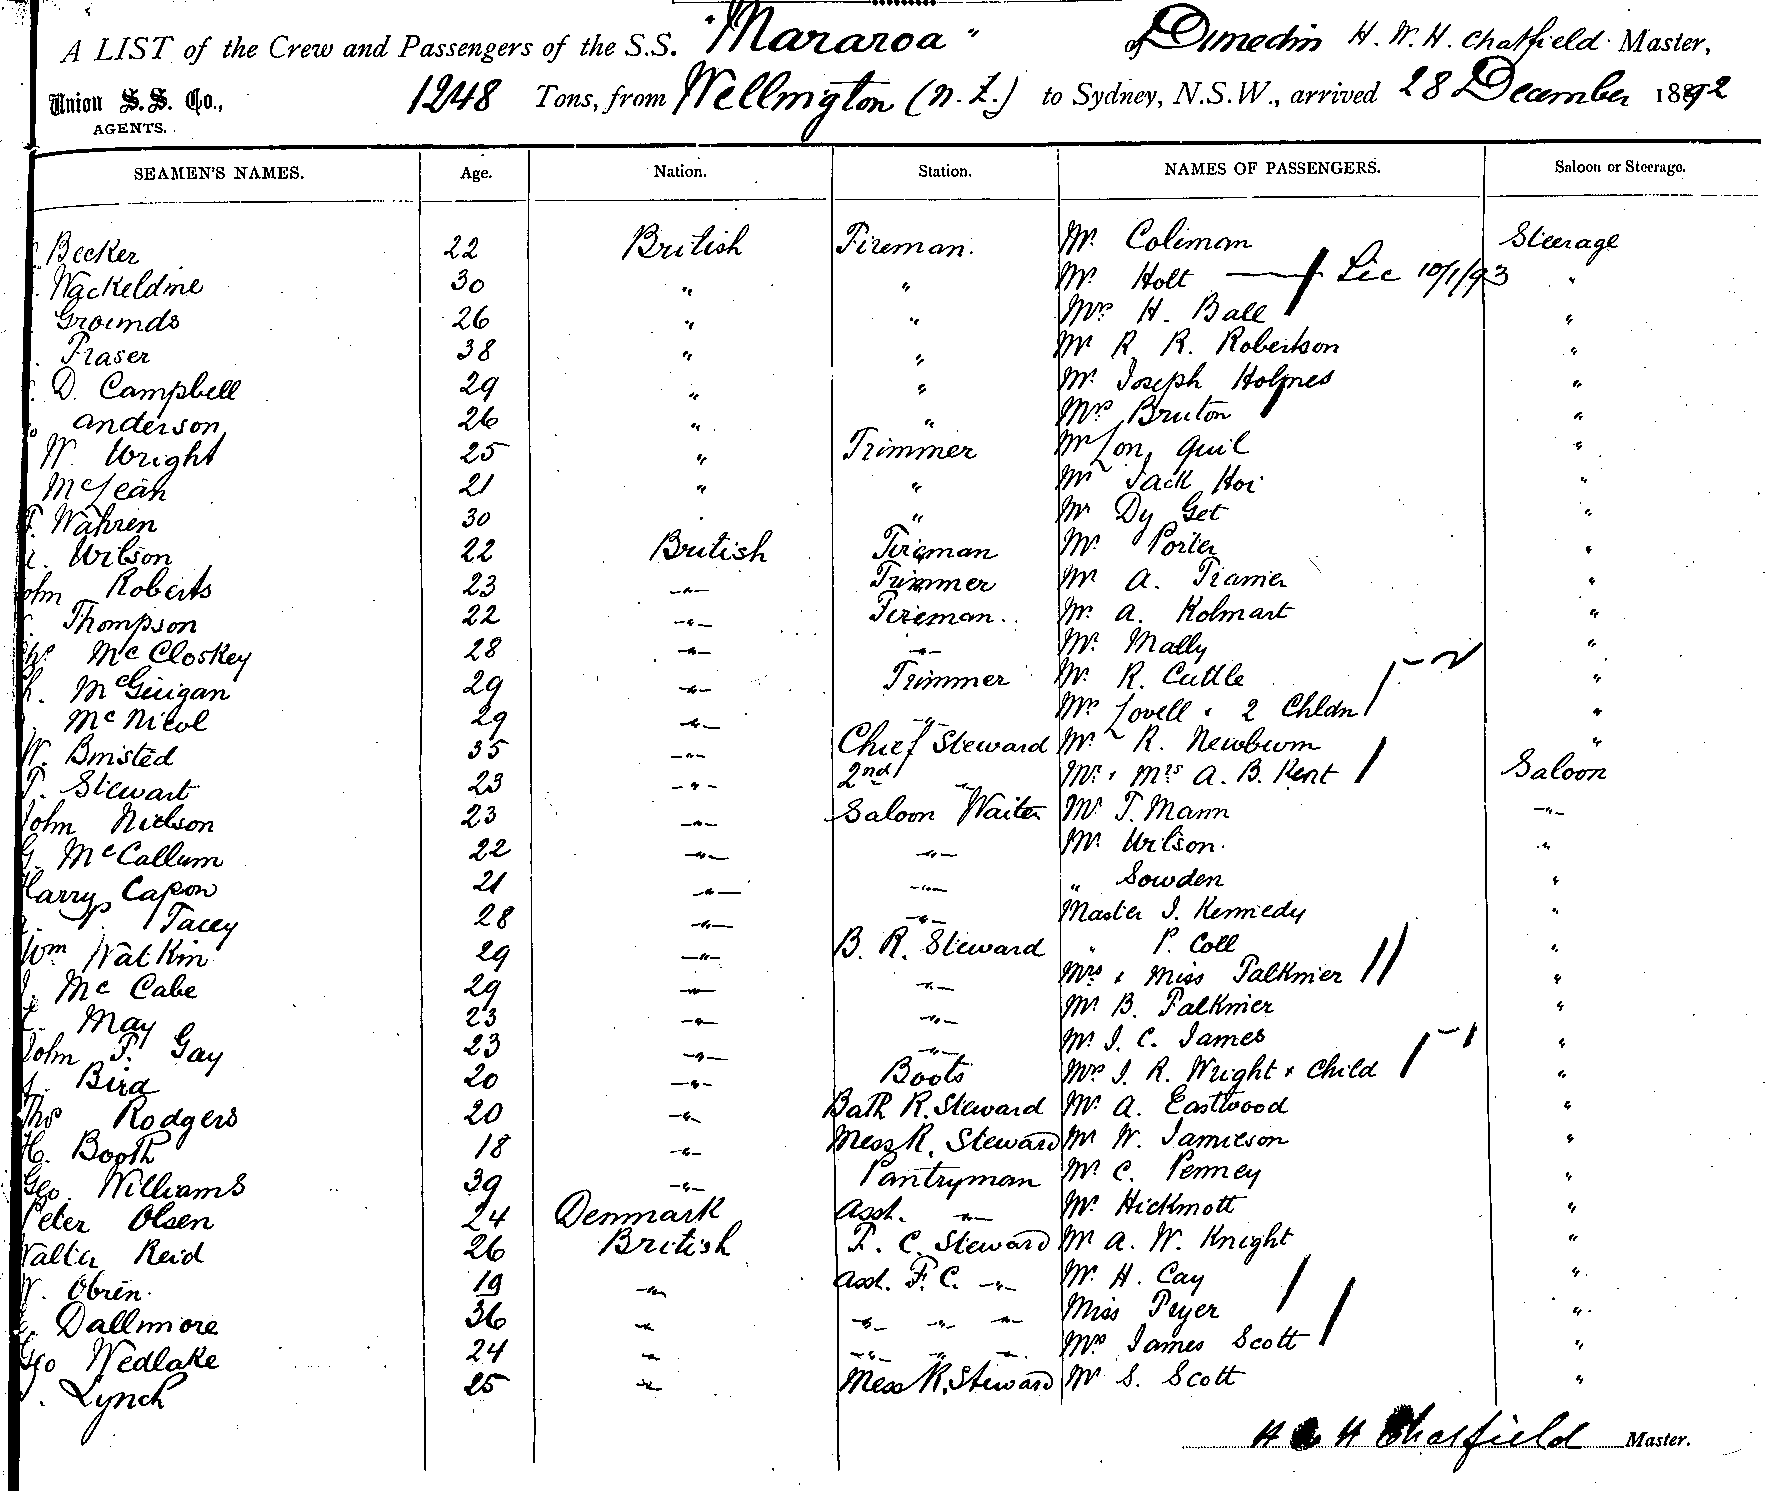 A LIST of the Crew and Passengers of the S.S. "Mararoa" of Dunedin H. W. H. Chatfield Master,
Union S. S. Co., AGENTS. 1248 Tons, from Wellington (N.Z.) to Sydney, N.S.W., arrived 28 December 1892
SEAMEN'S NAMES. Age. Nation. Station. NAMES OF PASSENGERS. Saloon or Steerage.
Becker 22 British Fireman. Mr. Coleman Steerage
30 " " Mr Holt Lic 10/1/93 "
Grounds 26 " " Mrs H. Ball "
Fraser 38 " " Mr R. R. Robertson "
D. Campbell 29 " " Mr. Joseph Holmes "
Anderson 26 " " Mrs Bruton "
W. Wright 25 " Trimmer Mr Lon Quil "
McLean 21 " " Mr Jack Hoi "
Wahren 30 " " Mr Dy Get "
Wilson 22 British Fireman Mr. Porter "
John Roberts 23 -"- Trimmer Mr A. "
Thompson 22 -"- Fireman. Mr. A. Kolmart "
McCloskey 28 -"- -"- Mr. Mally "
McGuigan 29 -"- Trimmer Mr. R. Cuttle "
McNicol 29 -"- -"- Mrs Lovell & 2 Chldn "
W. Binsted 35 -"- Chief Steward Mr. R. Newburn "
T. Stewart 23 -"- 2nd -"- Mr. & Mrs A. B. Kent Saloon
John Nielson 23 -"- Saloon Waiter Mr T. Mann -"-
G. McCallum 22 -"- -"- Mr. Wilson. "
Harry Capon 21 -"- -"- " Sowden "
Tacey 28 -"- -"- Master J. Kennedy "
Wm Watkin 29 -"- B. R. Steward " P. Coll "
J. McCabe 29 -"- -"- Mrs & Miss Falkiner "
May 23 -"- -"- Mr B. Falkiner "
John F. Gay 23 -"- -"- Mr J. C. James "
J. Bird 20 -"- Boots Mrs J. R. Wright & Child "
Thos Rodgers 20 -"- Bath R. Steward Mr. A. Eastwood "
H. Booth 18 -"- Mess R. Steward Mr W. Jamieson "
Geo. Williams 39 -"- Pantryman Mr. C. Penney "
Peter Olsen 24 Denmark Asst. -"- Mr. Hickmott "
Walter Reid 26 British F. C. Steward Mr A. W. Knight "
W. Obrien. 19 -"- Asst. F. C. -"- Mr. H. Cay "
Dallimore 36 -"- -"- -"- -"- Miss Pryer "
Geo Wedlake 24 -"- -"- " -"- Mrs James Scott "
Lynch 25 -"- Mess R. Steward Mr S. Scott "
H W H Chatfield Master.